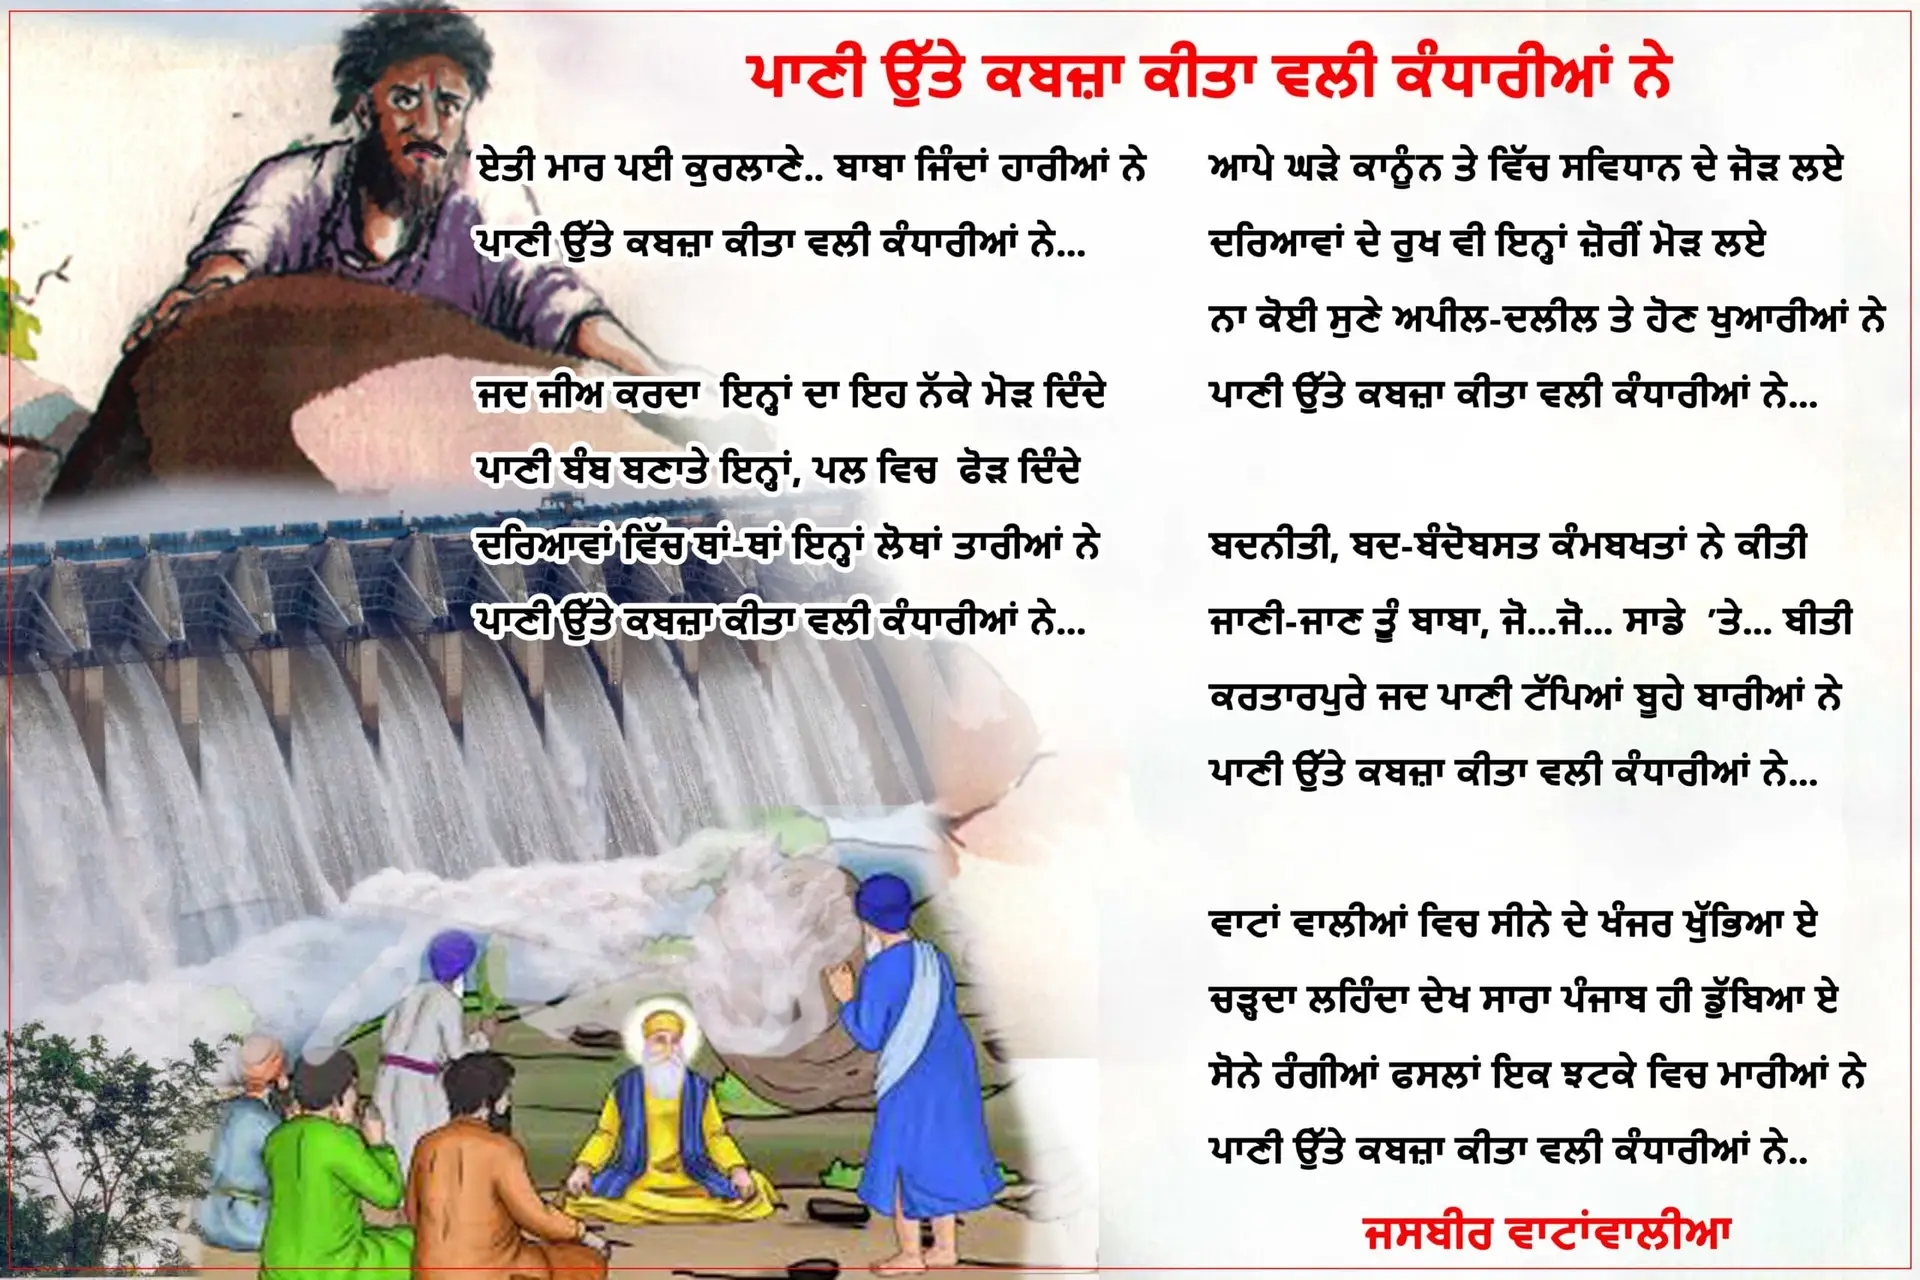 ਪਾਣੀ ਉੱਤੇ ਕਬਜ਼ਾ ਕੀਤਾ ਵਲੀ ਕੰਧਾਰੀਆਂ ਨੇ
ਏਤੀ ਮਾਰ ਪਈ ਕੁਰਲਾਣੇ.. ਬਾਬਾ ਜਿੰਦਾਂ ਹਾਰੀਆਂ ਨੇ
ਪਾਣੀ ਉੱਤੇ ਕਬਜ਼ਾ ਕੀਤਾ ਵਲੀ ਕੰਧਾਰੀਆਂ ਨੇ...
ਜਦ ਜੀਅ ਕਰਦਾ ਇਨ੍ਹਾਂ ਦਾ ਇਹ ਨੱਕੇ ਮੋੜ ਦਿੰਦੇ
ਪਾਣੀ ਬੰਬ ਬਣਾਤੇ ਇਨ੍ਹਾਂ, ਪਲ ਵਿਚ ਫੋੜ ਦਿੰਦੇ
ਦਰਿਆਵਾਂ ਵਿੱਚ ਥਾਂ-ਥਾਂ ਇਨ੍ਹਾਂ ਲੋਥਾਂ ਤਾਰੀਆਂ ਨੇ
ਪਾਣੀ ਉੱਤੇ ਕਬਜ਼ਾ ਕੀਤਾ ਵਲੀ ਕੰਧਾਰੀਆਂ ਨੇ...
ਆਪੇ ਘੜੇ ਕਾਨੂੰਨ ਤੇ ਵਿੱਚ ਸਵਿਧਾਨ ਦੇ ਜੋੜ ਲਏ
ਦਰਿਆਵਾਂ ਦੇ ਰੁਖ ਵੀ ਇਨ੍ਹਾਂ ਜ਼ੋਰੀਂ ਮੋੜ ਲਏ
ਨਾ ਕੋਈ ਸੁਣੇ ਅਪੀਲ-ਦਲੀਲ ਤੇ ਹੋਣ ਖੁਆਰੀਆਂ ਨੇ
ਪਾਣੀ ਉੱਤੇ ਕਬਜ਼ਾ ਕੀਤਾ ਵਲੀ ਕੰਧਾਰੀਆਂ ਨੇ...
ਬਦਨੀਤੀ, ਬਦ-ਬੰਦੋਬਸਤ ਕੰਮਬਖਤਾਂ ਨੇ ਕੀਤੀ
ਜਾਣੀ-ਜਾਣ ਤੂੰ ਬਾਬਾ, ਜੋ...ਜੋ... ਸਾਡੇ ’ਤੇ... ਬੀਤੀ
ਕਰਤਾਰਪੁਰੇ ਜਦ ਪਾਣੀ ਟੱਪਿਆਂ ਬੂਹੇ ਬਾਰੀਆਂ ਨੇ
ਪਾਣੀ ਉੱਤੇ ਕਬਜ਼ਾ ਕੀਤਾ ਵਲੀ ਕੰਧਾਰੀਆਂ ਨੇ...
ਵਾਟਾਂ ਵਾਲੀਆਂ ਵਿਚ ਸੀਨੇ ਦੇ ਖੰਜਰ ਖੁੱਭਿਆ ਏ
ਚੜ੍ਹਦਾ ਲਹਿੰਦਾ ਦੇਖ ਸਾਰਾ ਪੰਜਾਬ ਹੀ ਡੁੱਬਿਆ ਏ
ਸੋਨੇ ਰੰਗੀਆਂ ਫਸਲਾਂ ਇਕ ਝਟਕੇ ਵਿਚ ਮਾਰੀਆਂ ਨੇ
ਪਾਣੀ ਉੱਤੇ ਕਬਜ਼ਾ ਕੀਤਾ ਵਲੀ ਕੰਧਾਰੀਆਂ ਨੇ..
ਜਸਬੀਰ ਵਾਟਾਂਵਾਲੀਆ